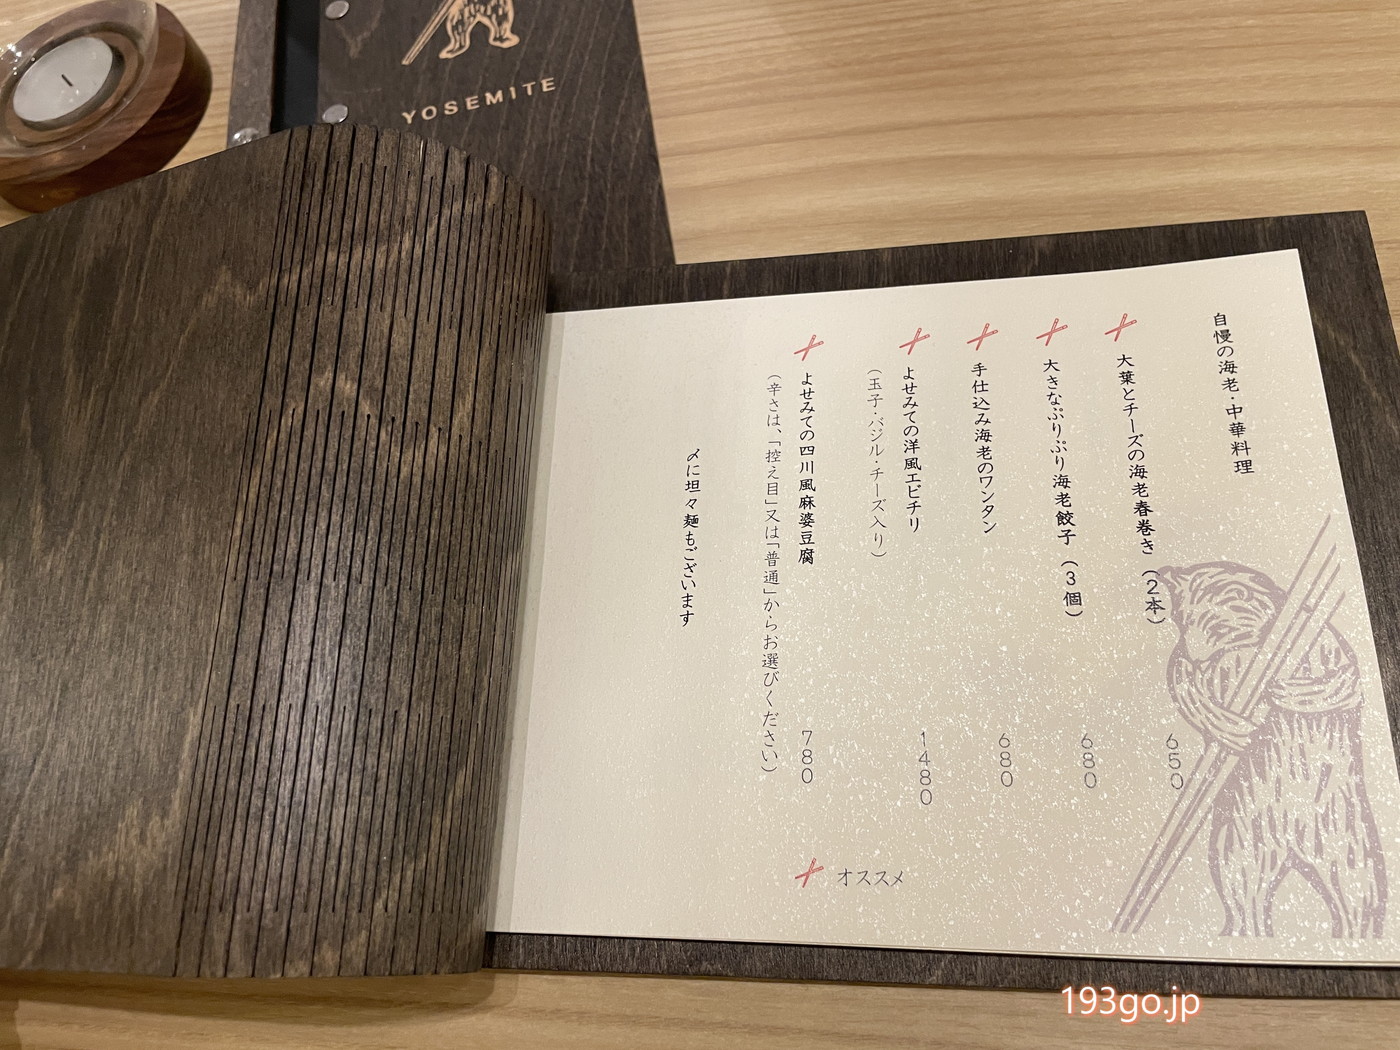 YOSEMITE
自慢の海老・中華料理
大葉とチーズの海老春巻き（2本） 650
大きなぷりぷり海老餃子（3個） 680
手仕込み海老のワンタン 680
よせみての洋風エビチリ 1480
（玉子・バジル・チーズ入り）
よせみての四川風麻婆豆腐 780
（辛さは、「控え目」又は「普通」からお選びください）
〆に坦々麺もございます
オススメ
193go.jp